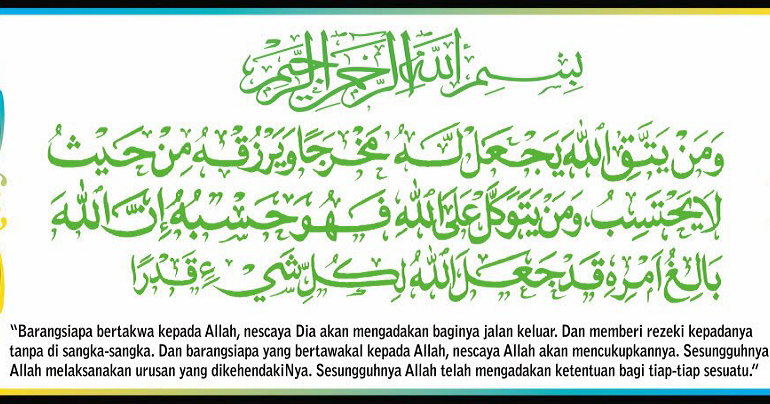 بِسْمِ اللَّهِ الرَّحْمَنِ الرَّحِيمِ
وَمَنْ يَتَّقِ اللَّهَ يَجْعَلْ لَهُ مَخْرَجًا وَيَرْزُقْهُ مِنْ حَيْثُ
لَا يَحْتَسِبُ، وَمَنْ يَتَوَكَّلْ عَلَى اللَّهِ فَهُوَ حَسْبُهُ إِنَّ اللَّهَ
بَالِغُ أَمْرِهِ قَدْ جَعَلَ اللَّهُ لِكُلِّ شَيْءٍ قَدْرًا
“Barangsiapa bertakwa kepada Allah, nescaya Dia akan mengadakan baginya jalan keluar. Dan memberi rezeki kepadanya
tanpa di sangka-sangka. Dan barangsiapa yang bertawakal kepada Allah, nescaya Allah akan mencukupkannya. Sesungguhnya
Allah melaksanakan urusan yang dikehendakiNya. Sesungguhnya Allah telah mengadakan ketentuan bagi tiap-tiap sesuatu.“